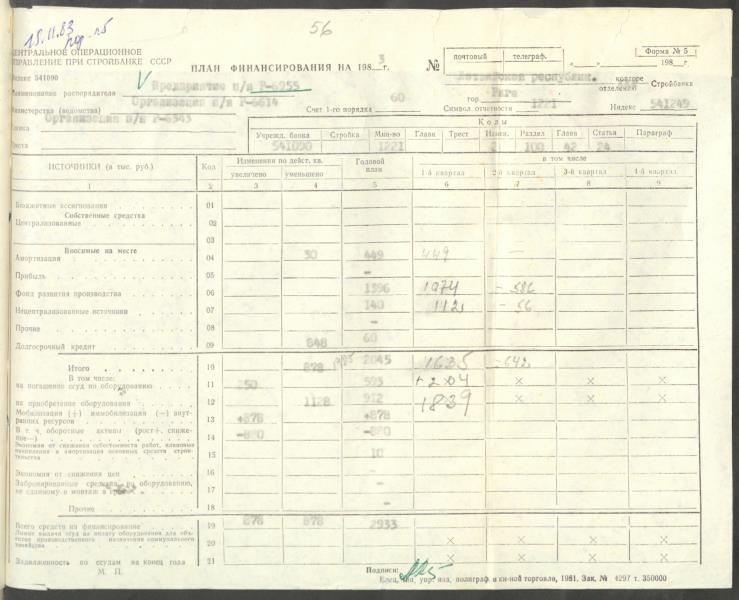 15.11.83
56
ЦЕНТРАЛЬНОЕ ОПЕРАЦИОННОЕ
УПРАВЛЕНИЕ ПРИ СТРОЙБАНКЕ СССР
Индекс 541090
ПЛАН ФИНАНСИРОВАНИЯ НА 1983 г. №
почтовый телеграф.
Форма № 5
„ “ 198 г.
Наименование распорядителя Предприятие п/я Г-6955
Министерства (ведомства) Организация п/я Г-6614
Главка Организация п/я Р-6543
Треста
Счет 1-го порядка 60
Латвийской республик. конторе
гор. Риге отделению Стройбанка
Символ отчетности 1221 Индекс 541249
Коды
Учрежд. банка Стройка Мин-во Главк Трест Измен. Раздел Глава Статья Параграф
541090 1221 2 100 42 24
ИСТОЧНИКИ (в тыс. руб.) Код Изменения по дейст. кв. Годовой план в том числе
увеличено уменьшено 1-й квартал 2-й квартал 3-й квартал 4-й квартал
1 2 3 4 5 6 7 8 9
Бюджетные ассигнования 01
Собственные средства
Централизованные 02
03
Вносимые на месте
Амортизация 04 30 449 449 —
Прибыль 05 -
Фонд развития производства 06 1396 1974 - 586
Нецентрализованные источники 07 140 112 - 56
Прочие 08 -
Долгосрочный кредит 09 848 60
Итого 10 878 2045 1635 -642
В том числе:
на погашение ссуд по оборудованию 11 250 593 +204 × × ×
на приобретение оборудования 12 1128 912 1839 × × ×
Мобилизация (+) иммобилизация (—) внутренних ресурсов 13 +878 +878
В т. ч. оборотные активы (рост+, снижение—) 14 -880 -880
Экономия от снижения себестоимости работ, плановые накопления и амортизация основных средств строительства 15 10
Экономия от снижения цен 16 -
Забронированные средства по оборудованию, не сданному в монтаж 17 -
Прочие 18 -
Всего средств на финансирование 19 878 878 2933
Лимит выдачи ссуд на оплату оборудования для объектов производственного назначения 20 × × × ×
Задолженность по ссудам на конец года 21 × × × ×
М. П.
Подписи:
Елец, тип. упр. изд. полиграф. и кн-ной торговле, 1981. Зак. № 4297 т. 350000